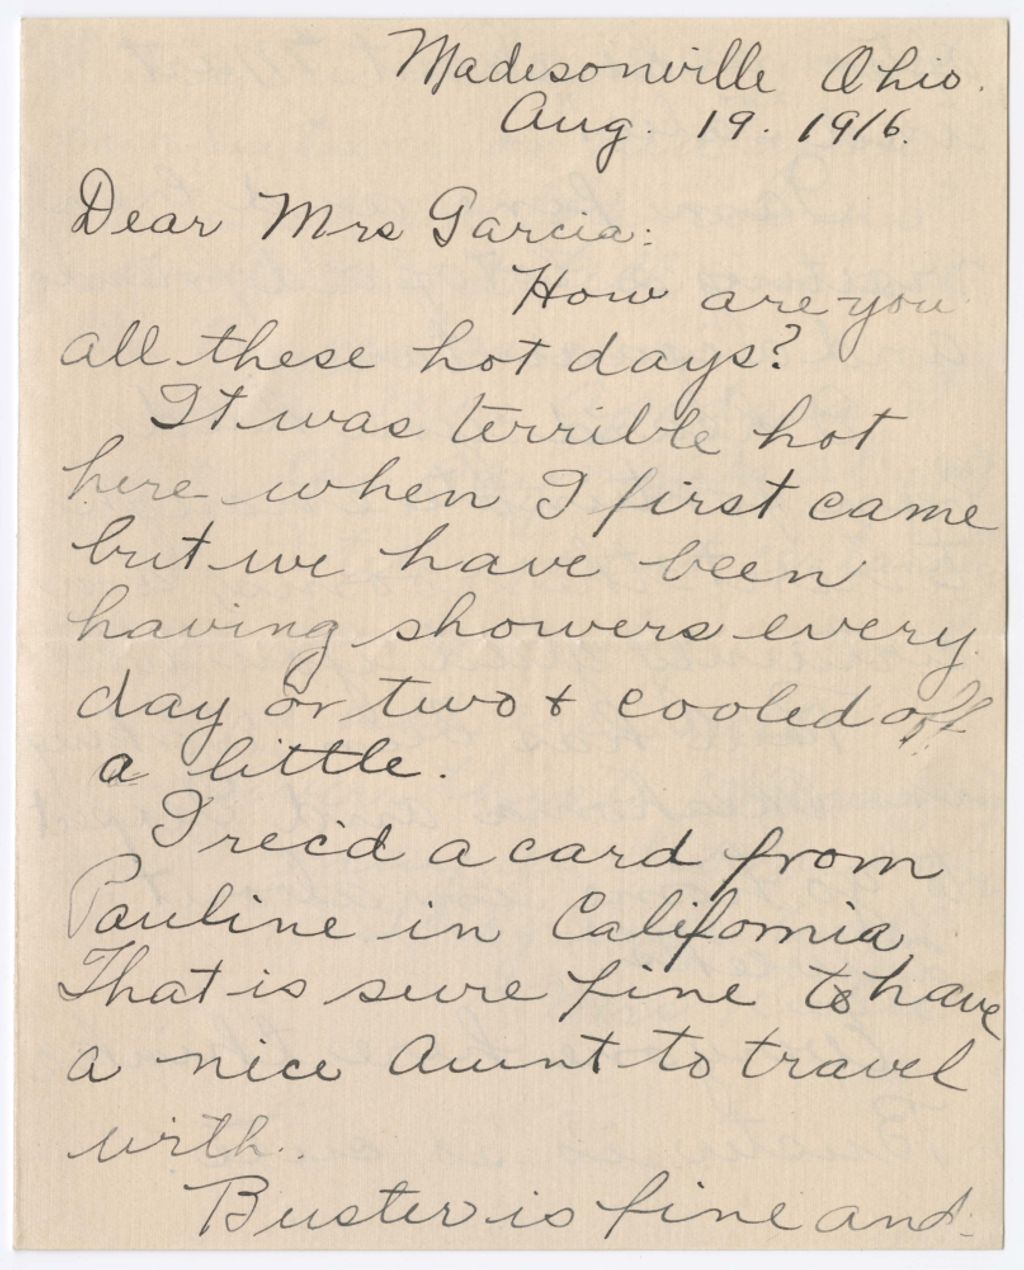 Madesonville Ohio.
Aug. 19. 1916.
Dear Mrs Garcia:
How are you
all these hot days?
It was terrible hot
here when I first came
but we have been
having showers every
day or two & cooled off
a little.
I rec'd a card from
Pauline in California
That is sure fine to have
a nice Aunt to travel
with.
Buster is fine and